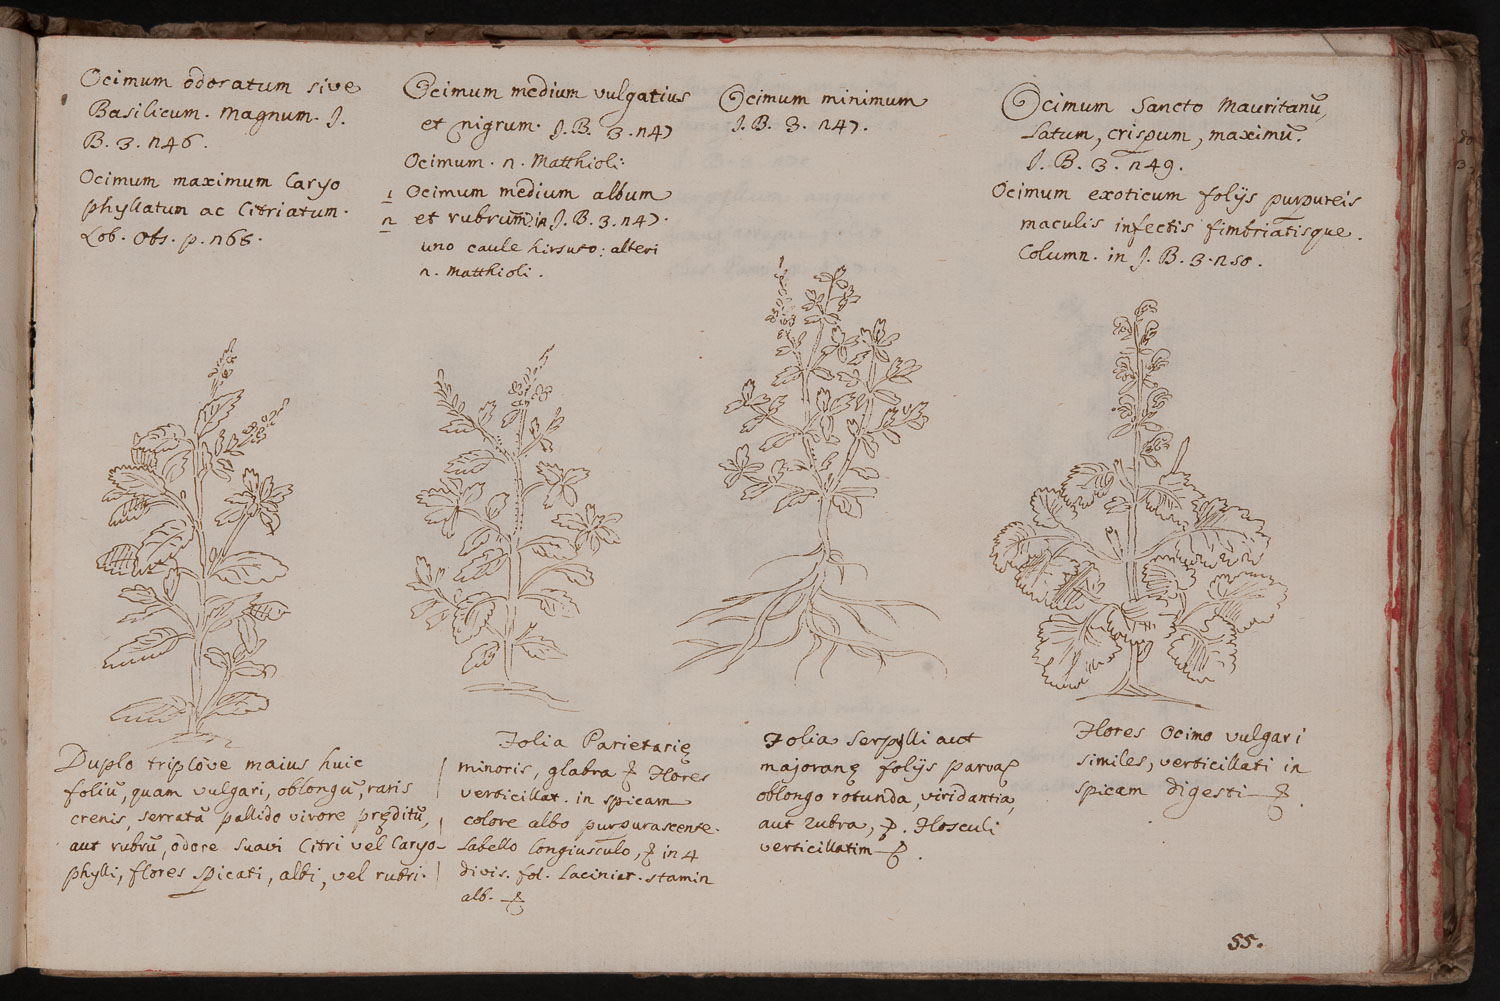 Ocimum odoratum sive
Basilicum. Magnum. J.
B. 3. n46.
Ocimum maximum Caryo
phyllatum ac Citriatum.
Lob. Obs. p. n66.
Ocimum medium vulgatius
et nigrum. J. B. 3. n47
Ocimum. n. Matthioli:
1 Ocimum medium album
n et rubrum in J. B. 3. n47.
uno caule hirsuto: alteri
n. Matthioli.
Ocimum minimum
J. B. 3. n47.
Ocimum Sancto Mauritanū,
Latum, crispum, maximū.
J. B. 3. n49.
Ocimum exoticum folijs purpureis
maculis infectis fimbriatisque.
Column. in J. B. 3. n50.
Duplo triplove maius huic
foliū, quam vulgari, oblongū, raris
crenis, serratū pallido virore pręditū,
aut rubrū, odore suavi Citri vel Caryo-
phylli, flores spicati, albi, vel rubri.
Folia Parietarię
minoris, glabra Flores
verticillat. in spicam
colore albo purpurascente.
Labello longiusculo, in 4
divis. fol. laciniat. stamin
alb.
Folia Serpilli aut
majoranę folijs parva
oblongo rotunda, viridantia,
aut rubra, Flosculi
verticillatim
Flores Ocimo vulgari
similes, verticillati in
spicam digesti
55.